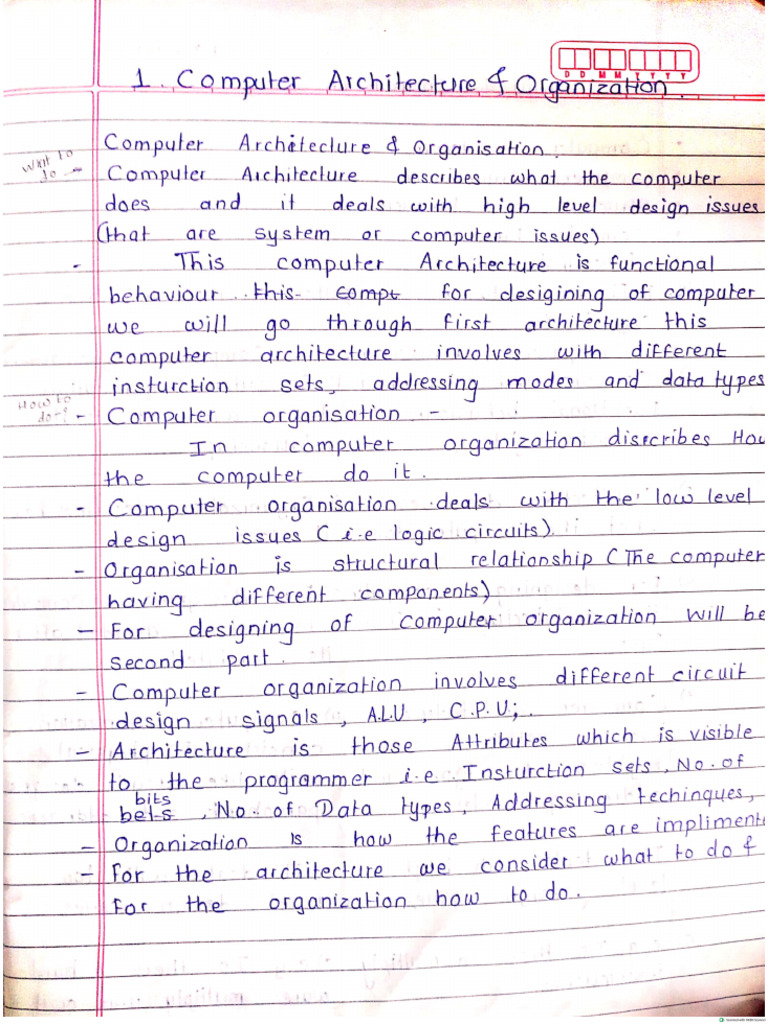 D D M M Y Y Y Y
1. Computer Architecture & Organization.
Computer Architecture & Organisation.
What to
do -
Computer Architecture describes what the computer
does and it deals with high level design issues
(that are system or computer issues)
- This computer Architecture is functional
behaviour this compt for desigining of computer
we will go through first architecture this
computer architecture involves with different
insturction sets, addressing modes and data types
How to
do-?
- Computer organisation -
In computer organization discribes How
the computer do it.
- Computer organisation deals with the low level
design issues (i.e logic circuits).
- Organisation is structural relationship (The computer
having different components)
- For designing of computer organization will be
second part.
- Computer organization involves different circuit
design signals, ALU, C.P.U;.
- Architecture is those Attributes which is visible
to the programmer i.e Insturction sets, No. of
bits
bets, No. of Data types, Addressing techinques,
- Organization is how the features are impliment
- For the architecture we consider what to do &
for the organization how to do.